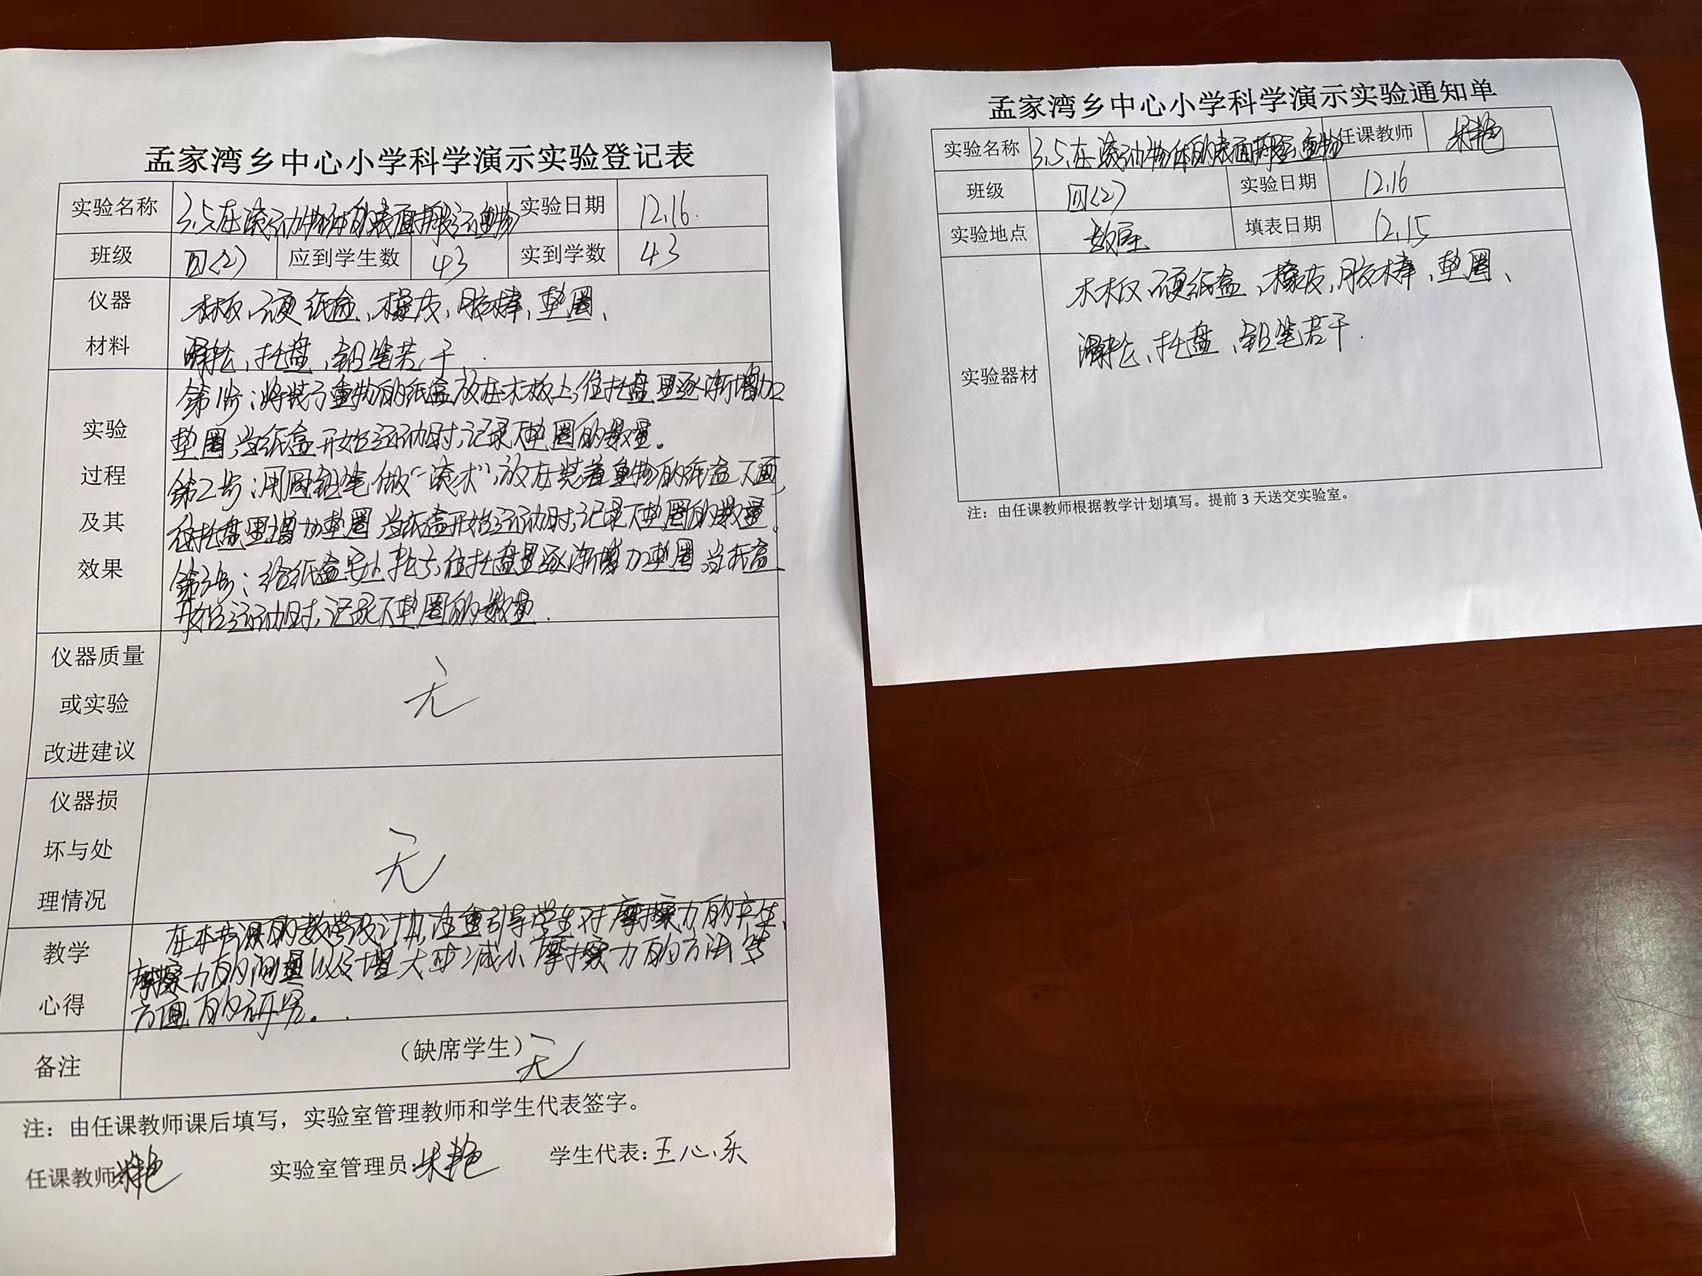 孟家湾乡中心小学科学演示实验登记表
实验名称 3.5在滚动物体的表面拖动重物 实验日期 12.16.
班级 四(2) 应到学生数 43 实到学数 43
仪器 木板、硬纸盒、橡皮、胶棒、垫圈、
材料 滑轮、托盘、铅笔若干.
实验
过程
及其
效果
第1步:将装了重物的纸盒放在木板上,往托盘里逐渐增加
垫圈,当纸盒开始运动时,记录下垫圈的数量。
第2步:用圆铅笔做“滚木”,放在装着重物的纸盒下面,
往托盘里增加垫圈,当纸盒开始运动时,记录下垫圈的数量.
第3步:给纸盒安上轮子,往托盘里逐渐增加垫圈,当纸盒
开始运动时,记录下垫圈的数量.
仪器质量
或实验
改进建议
无
仪器损
坏与处
理情况
无
教学
心得
在本节课的教学设计中,注重引导学生对摩擦力的产生、
摩擦力的测量以及增大或减小摩擦力的方法等
方面的研究。
备注 (缺席学生) 无
注:由任课教师课后填写,实验室管理教师和学生代表签字。
任课教师 实验室管理员: 学生代表:王心乐
孟家湾乡中心小学科学演示实验通知单
实验名称 3.5在滚动物体的表面拖动重物 任课教师
班级 四(2) 实验日期 12.16
实验地点 教室 填表日期 12.15
实验器材
木板、硬纸盒、橡皮、胶棒、垫圈、
滑轮、托盘、铅笔若干.
注:由任课教师根据教学计划填写。提前 3 天送交实验室。